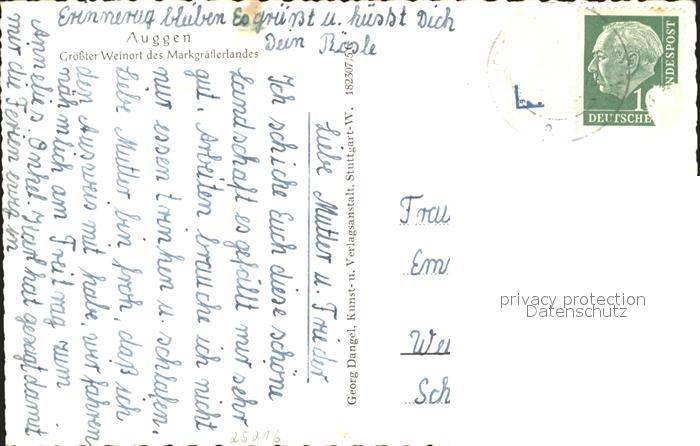 Erinnerug bluben Es grüßt u. küsst Dich
Dein Rösle
Auggen
Größter Weinort des Markgräflerlandes
Liebe Mutter u. Frieder
Ich schicke Euch diese schöne
Landschaft es gefällt mir sehr
gut. Arbeiten brauche ich nicht
nur essen trinken u. schlafen.
Liebe Mutter bin froh, daß ich
den Ausweis mit habe, wir fahren
nähmlich am Freitrag zum
Annelies. Onkel Karl hat gesagt damit
mir die Ferien ewig in
Georg Dangel, Kunst- u. Verlagsanstalt, Stuttgart-W. 182307/5
Frau
Em
We
Sch
DEUTSCHE
BUNDESPOST
privacy protection
Datenschutz
25216